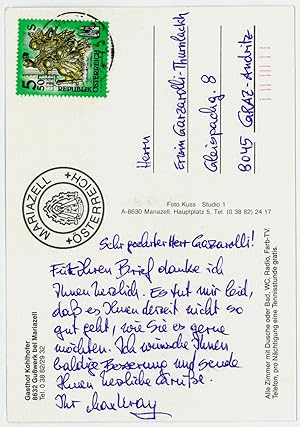 5 50
REPUBLIK
ÖSTERREICH
Herrn
Erwin Garzarolli-Thurnlackh
8
8045 GRAZ-Andritz
Foto Kuss · Studio 1
A-8630 Mariazell, Hauptplatz 5, Tel. (0 38 82) 24 17
MARIAZELL
+ÖSTERREICH+
Gasthof Kohlhofer
8632 Gußwerk bei Mariazell
Tel. 0 38 82/29 32
Sehr geehrter Herr Garzarolli!
Für Ihren Brief danke ich
Ihnen herzlich. Es tut mir leid,
daß es Ihnen derzeit nicht so
gut geht, wie Sie es gerne
möchten. Ich wünsche Ihnen
baldige Besserung und sende
Ihnen herzliche Grüße.
Ihr
Alle Zimmer mit Dusche oder Bad, WC, Radio, Farb-TV,
Telefon, pro Nächtigung eine Tennisstunde gratis.